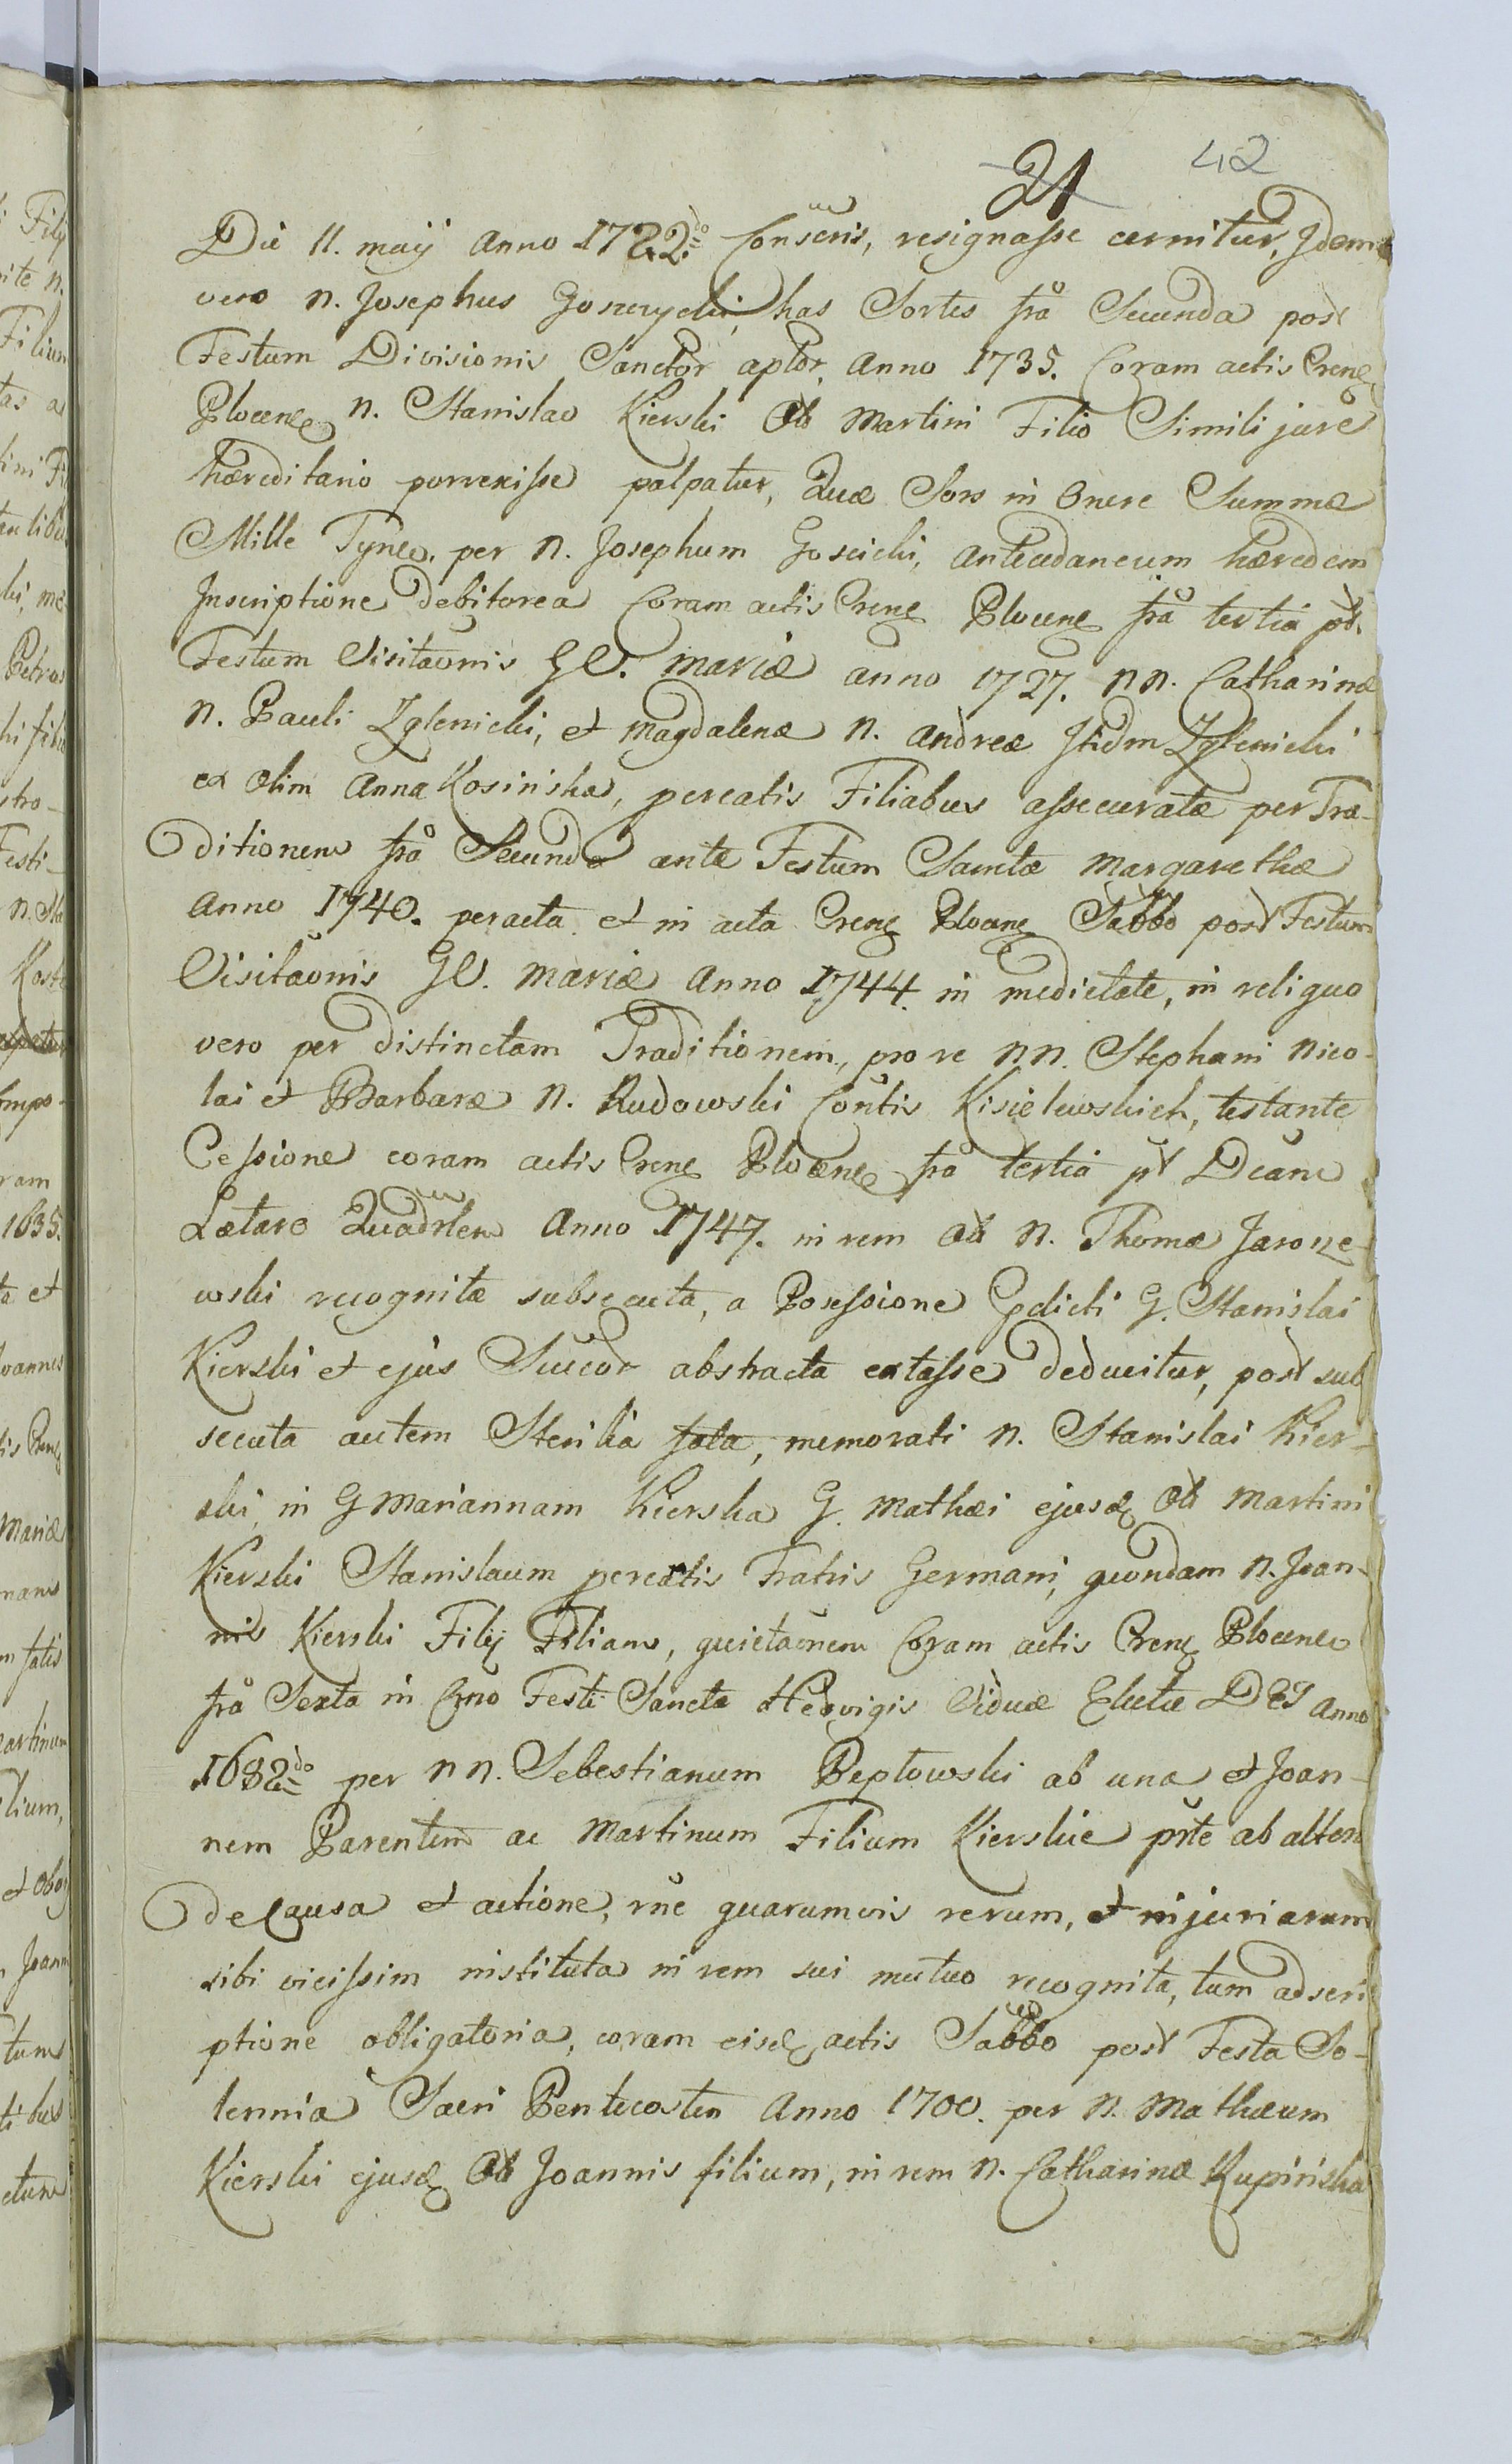 21 42
Die 11. maij anno 1722do Conscris, resignasse cernitur, Idem
vero N. Josephus Gosczycki, has Sortes fra Secunda post
Festum Divisionis Sanctor aplor, anno 1735. Coram actis Crens
Plocens N. Stanislao Kierski Ol Martini Filio Simili jure
hæreditario porrexisse palpatur, Quæ Sors in Onere Summæ
Mille Tynf. per N. Josephum Goscicki, antecedaneum hæredem
Inscriptione debitorea Coram actis Crens Plocens fra tertia pt.
Festum Visitaonis GV. Mariæ anno 1727. NN. Catharinæ
N. Pauli Zglenicki, et Magdalenæ N. Andreæ Itidm Zglenicki
ex Olim Anna Kosinska, procreatis Filiabus assecuratæ per Tra-
ditionem fra Secunda ante Festum Sanctæ Margarethæ
Anno 1740. peracta et in acta Crens Plocens Sabbo post Festum
Visitaonis GV. Mariæ Anno 1744. in medietate, in reliquo
vero per distinctam Traditionem, pro re NN. Stephani Nico-
lai et Barbaræ N. Rudowski Contis Kisielewskich, testante
Cessione coram actis Crens Plocens fra tertia pt Dcam
Lætare Quadrlem Anno 1747. in rem Ol N. Thomæ Jaroze-
wski recognitæ subsecuta, a Posessione Pdicti G. Stanislai
Kierski et ejus Succor abstracta extasse deducitur, post sub
secuta autem Sterilia fata, memorati N. Stanislai Kier-
ski, in G Mariannam Kierska G. Mathæi ejusd Ol Martini
Kierski Stanislaum percatis Fratris Germani, quondam N. Joan-
nis Kierski Filij Filiam, quietaonem Coram actis Crens Plocens
fra Sexta in Crno Festi Sanctæ Hedvigis Viduæ Electæ DEI anno
1682do per NN. Sebestianum Peptowski ab una et Joan-
nem Parentem ac Martinum Filium Kierskie prte ab altera
de Causa et actione, rne quarumvis rerum, et injuriarum
sibi vicissim instituta in rem sui mutuo recognita, tum adscri
ptione obligatoria, coram eisd actis Sabbo post Festa So-
lennia Sacri Pentecosten Anno 1700. per N. Mathæum
Kierski ejusd Ol Joannis filium, in rem N. Catharinæ Kupinska